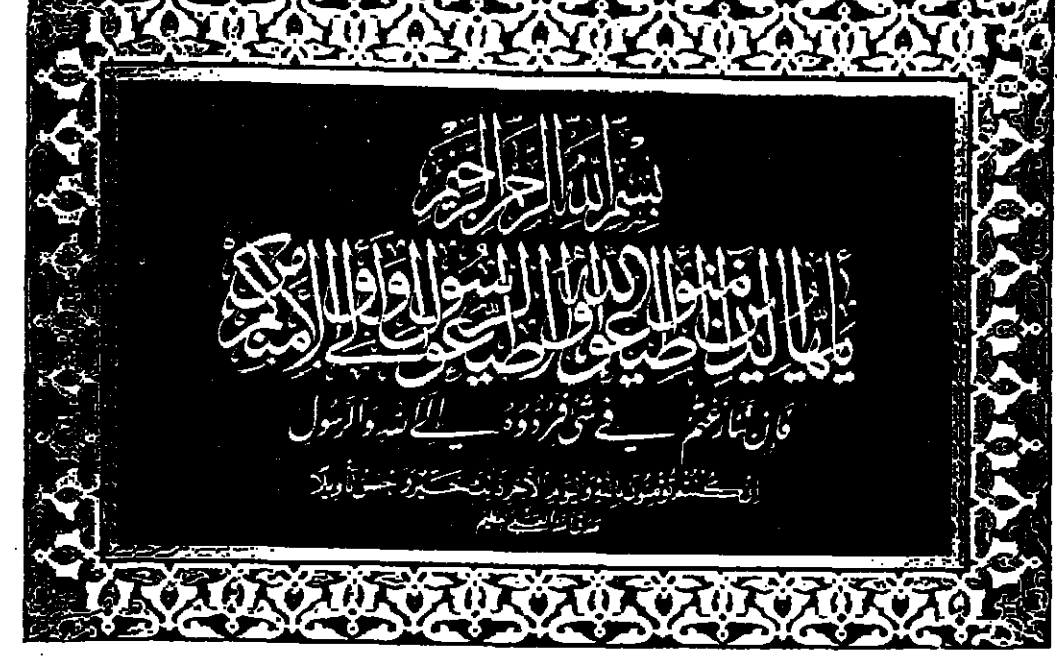 بسم الله الرحمن الرحيم
يا أيها الذين آمنوا أطيعوا الله وأطيعوا الرسول وأولي الأمر منكم
فإن تنازعتم في شيء فردوه إلى الله والرسول
إن كنتم تؤمنون بالله واليوم الآخر ذلك خير وأحسن تأويلا
صدق الله العلي العظيم